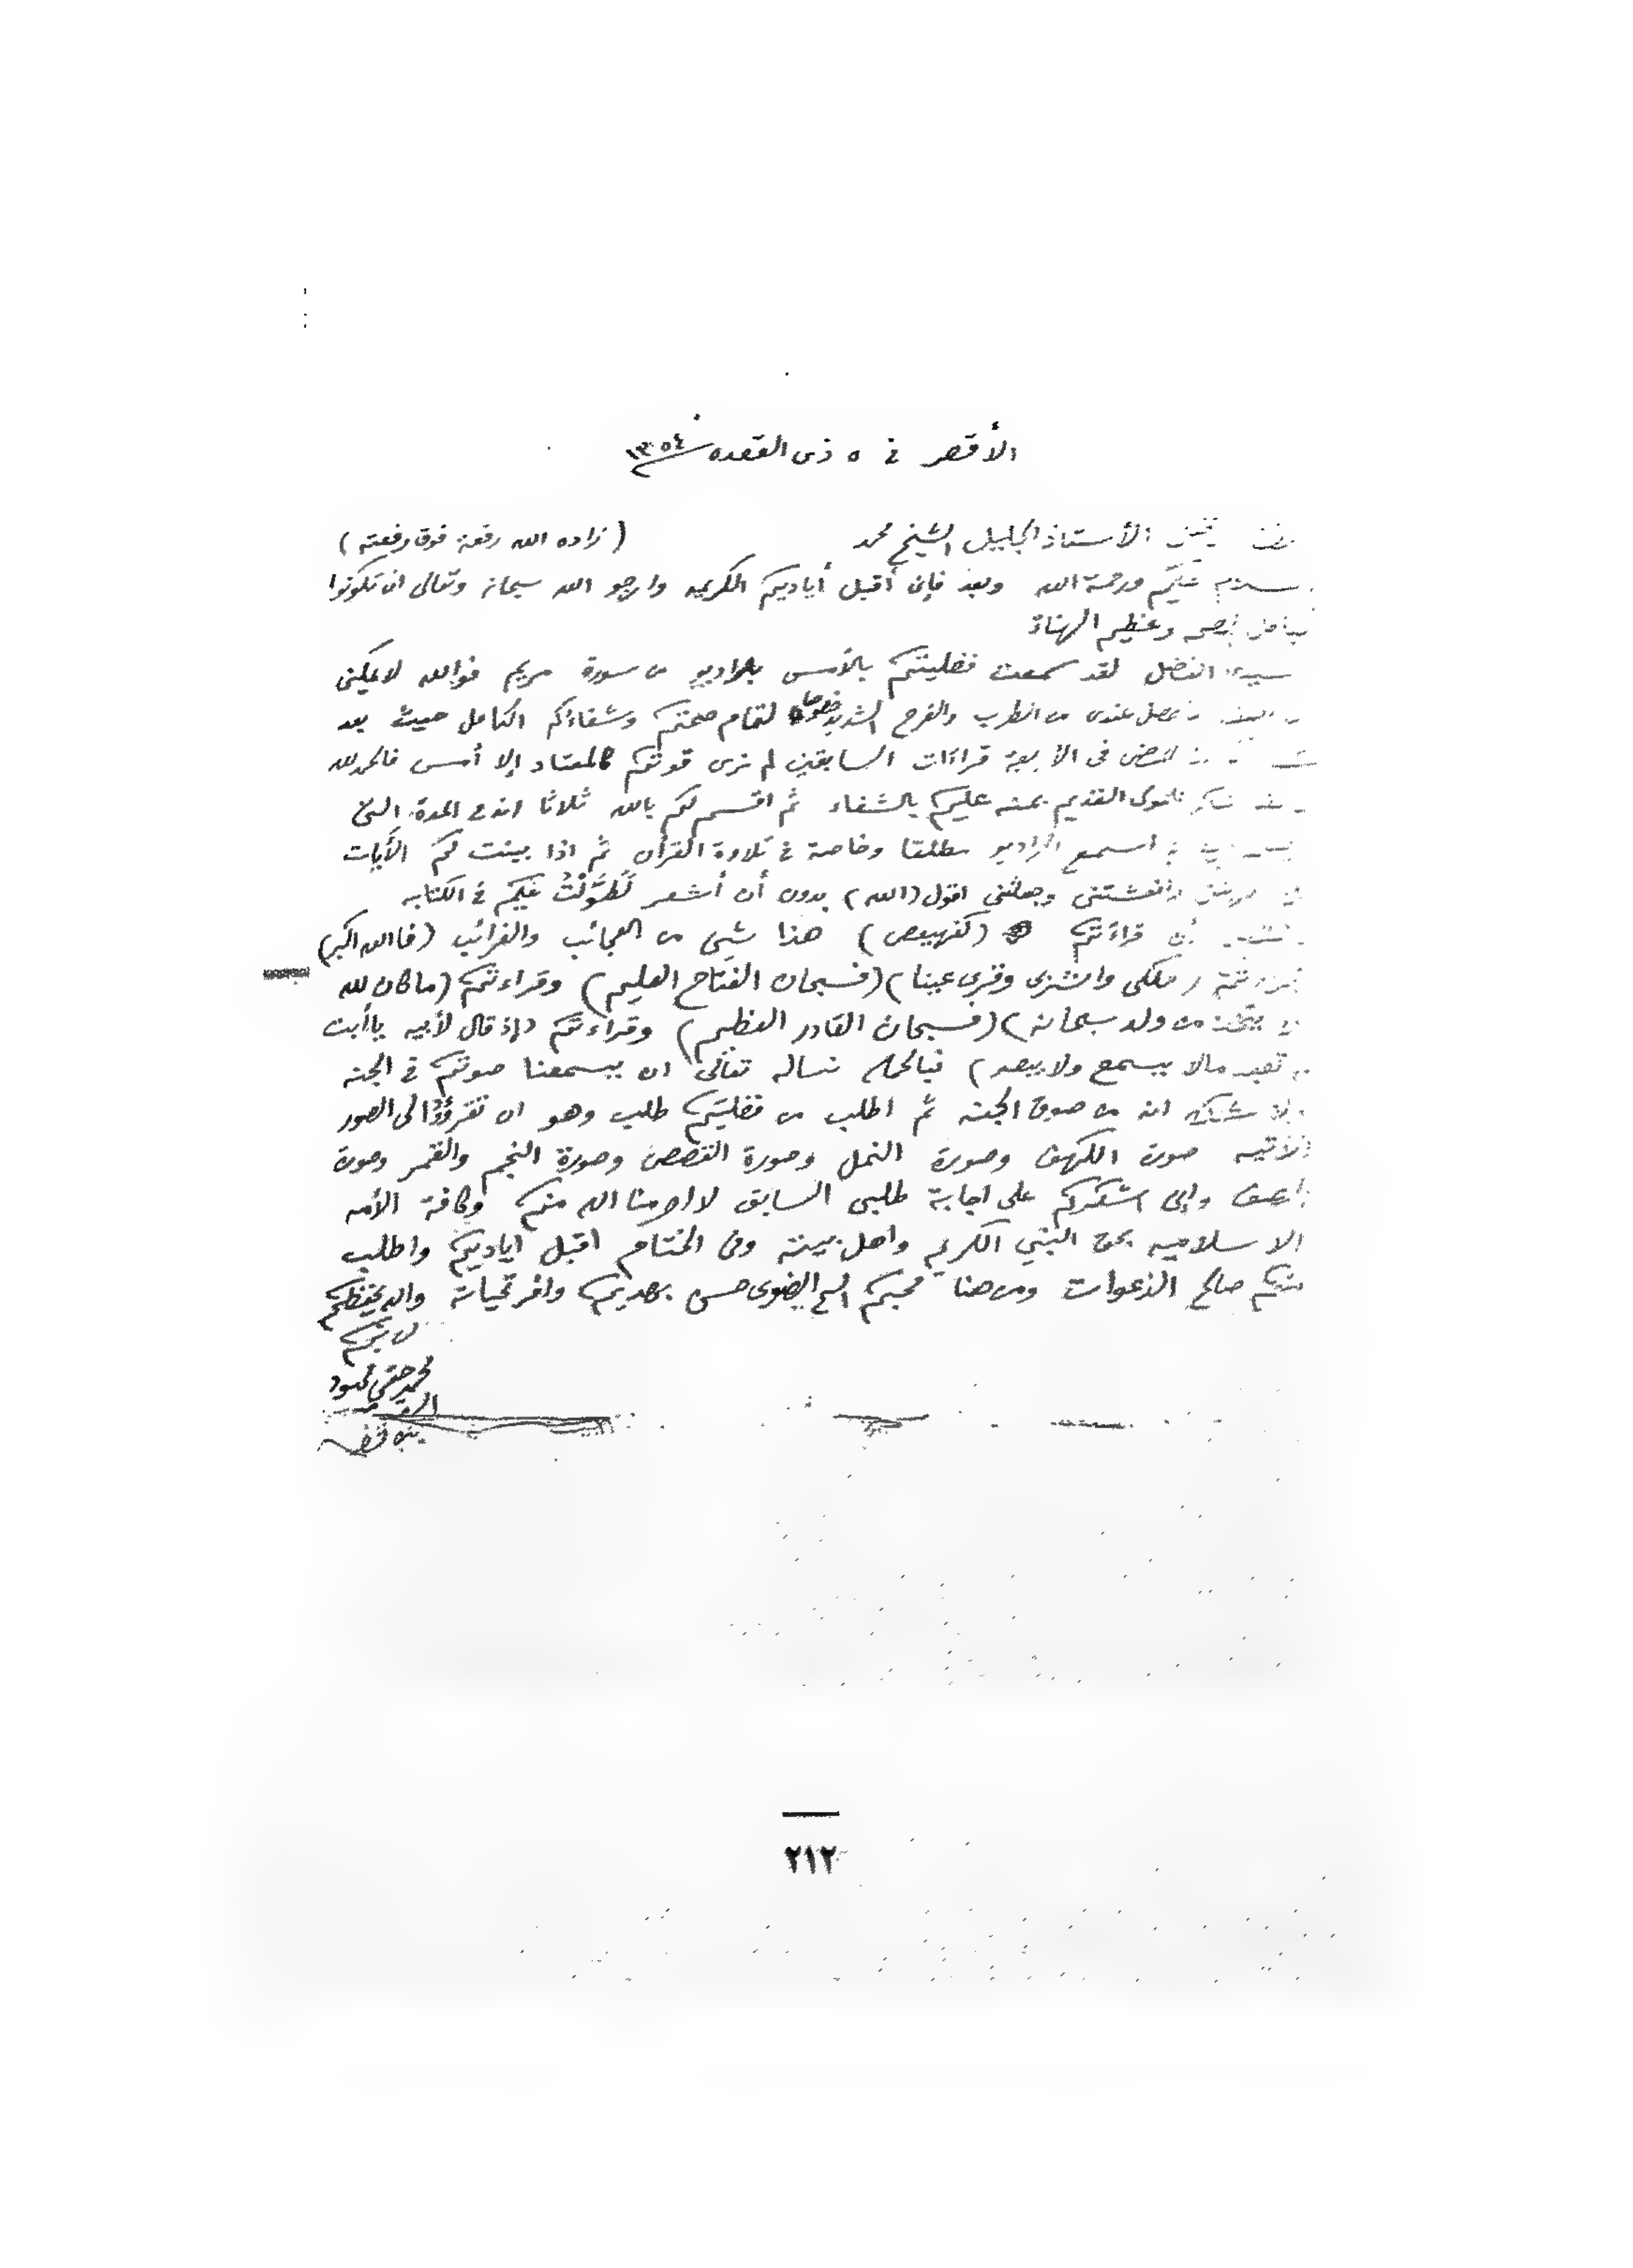 الأقصر فى ٥ ذى القعده ١٣٥٤
الأستاذ الجليل الشيخ محمد (زاده الله رفعة فوق رفعته)
عليكم ورحمة الله وبعد فإنى أقبل أياديكم الكريمه وارجو الله سبحانه وتعالى ان تكونوا
وعظيم الهناة
الفضل لقد سمعت فضليتكم بالأمس بالراديو من سورة مريم فوالله لا يمكنى
عندى من الطرب والفرح الشديد خصوصا لتمام صحتكم وشفاءكم الكامل حيث بعد
فى الأربعة قراءات السابقين لم نرى قوتكم كالمعتاد إلا أمس فالحمد لله
القديم بمنه عليكم بالشفاء ثم اقسم لكم بالله ثلاثا انه فى المدة التى
اسمع الراديو مطلقا وخاصة فى تلاوة القرآن ثم اذا بينت لكم الأيات
وانعشتنى وجعلتنى اقول (الله) بدون أن أشعر لَطَوَّلْتُ عليكم فى الكتابه
قراءتكم (كهيعص) هذا شىء من العجائب والغرائب (فالله اكبر)
فكلى واشربى وقرى عينا) (فسبحان الفتاح العليم) وقراءتكم (ما كان لله
يتخذ من ولد سبحانه) (فسبحان القادر العظيم) وقراءتكم (إذ قال لأبيه يا أبت
تعبد مالا يسمع ولا يبصر) نساله تعالى ان يسمعنا صوتكم فى الجنه
شك انه من صوت الجنه ثم اطلب من فضليتكم طلب وهو ان تقرؤوا لى الصور
الأتيه صورة الكهف وصورة النمل وصورة القصص وصورة النجم والقمر وصورة
وإنى اشكركم على اجابة طلبى السابق لا احرمنا الله منكم وكافة الأمه
الاسلاميه بحق النبي الكريم واهل بيته وفى الختام اقبل اياديكم واطلب
منكم صالح الدعوات ومن هنا محبكم حسن يهديكم وافر تحياته والله يحفظكم
محمد حقى محمود
٢١٢